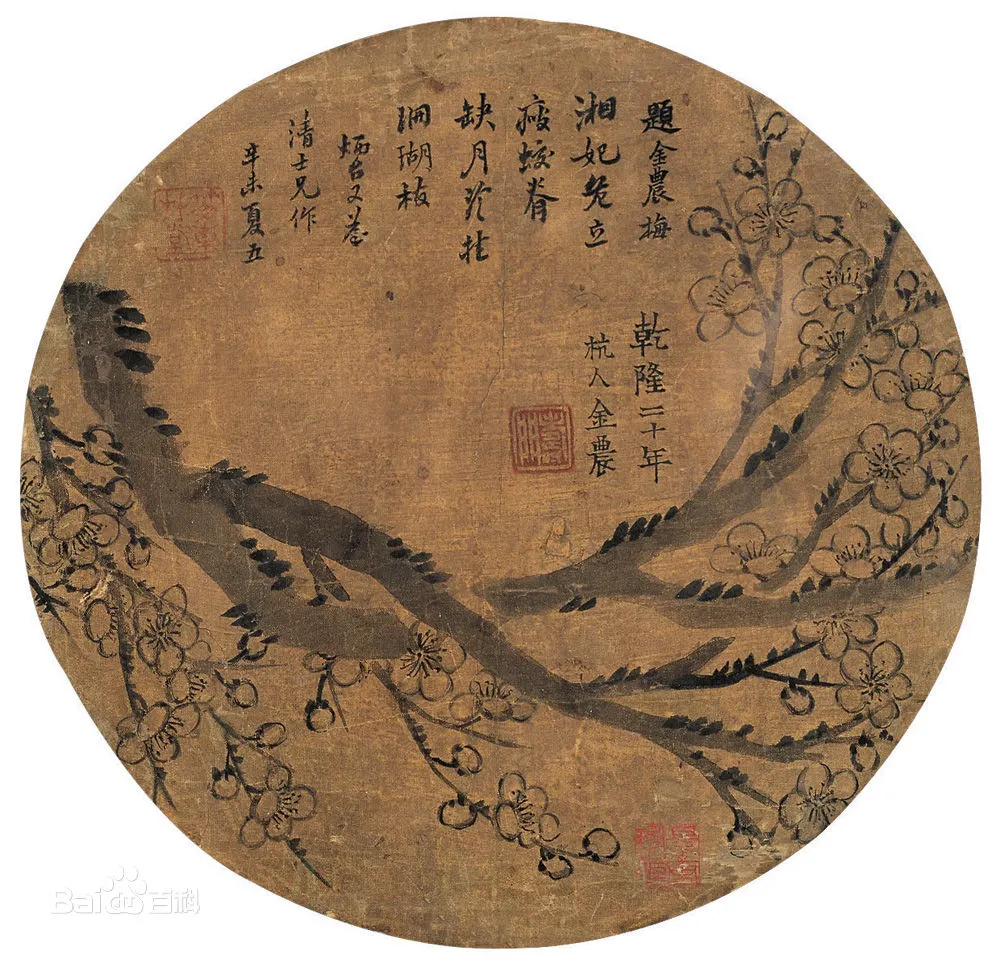 題金農梅
湘妃危立
瘦蛟脊
缺月冷挂
珊瑚枝
清士兄作
辛未夏五
乾隆二十年
杭人金農
Bai百科